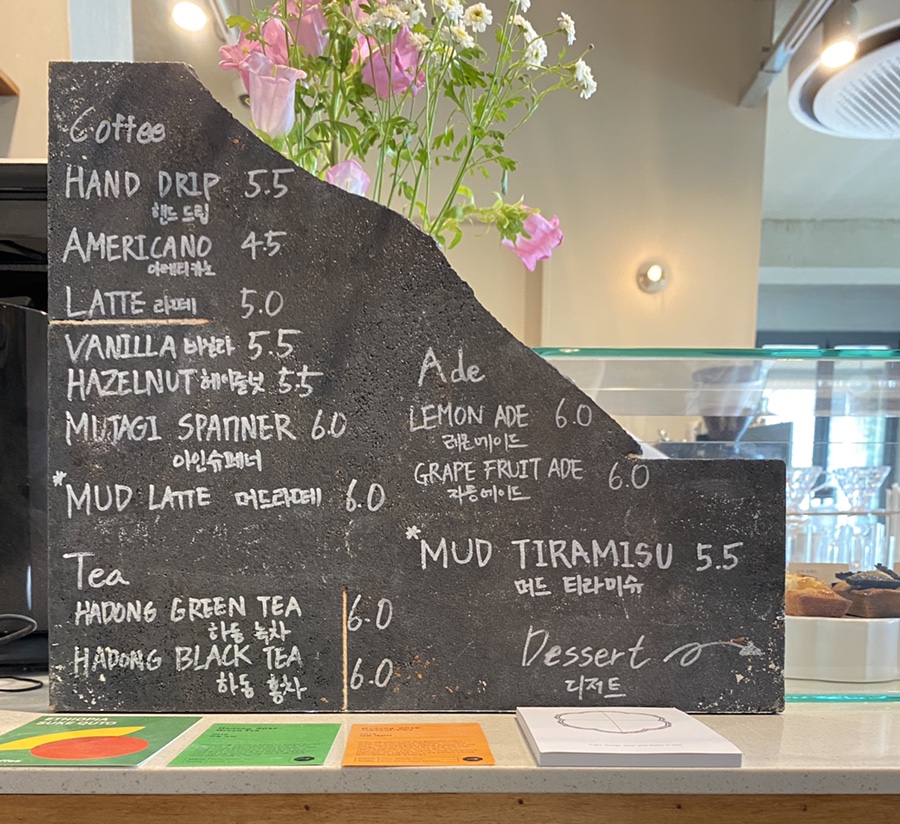 Coffee
HAND DRIP 5.5
핸드 드립
AMERICANO 4.5
아메리카노
LATTE 라떼 5.0
VANILLA 바닐라 5.5
HAZELNUT 헤이즐넛 5.5
MUTAGI SPANNER 6.0
아인슈페너
*MUD LATTE 머드라떼 6.0
Tea
HADONG GREEN TEA 6.0
하동 녹차
HADONG BLACK TEA 6.0
하동 홍차
Ade
LEMON ADE 6.0
레몬에이드
GRAPE FRUIT ADE 6.0
자몽에이드
*MUD TIRAMISU 5.5
머드 티라미슈
Dessert
디저트
ETHIOPIA